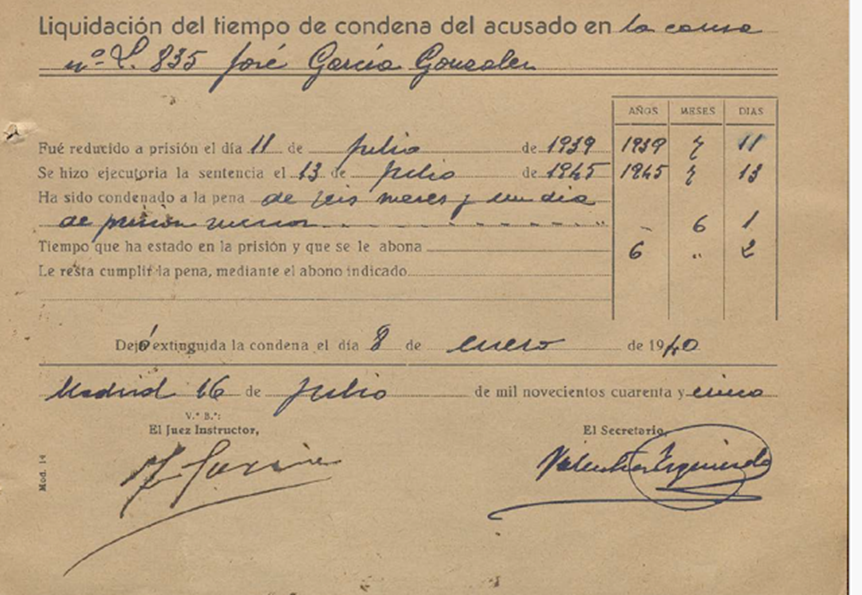 Liquidación del tiempo de condena del acusado en la causa
nº L. 835 José García Gonzalez
AÑOS MESES DIAS
Fué reducido a prisión el día 11 de julio de 1939 1939 7 11
Se hizo ejecutoria la sentencia el 13 de julio de 1945 1945 7 13
Ha sido condenado a la pena de seis meses y un día
de prisión menor - - - - - - - - - - " - 6 1
Tiempo que ha estado en la prisión y que se le abona 6 " 2
Le resta cumplir la pena, mediante el abono indicado
Dejó extinguida la condena el día 8 de enero de 1940
Madrid 16 de julio de mil novecientos cuarenta y cinco
V.º B.º:
El Juez Instructor, El Secretario,
Valentín Izquierdo
Mod. 14